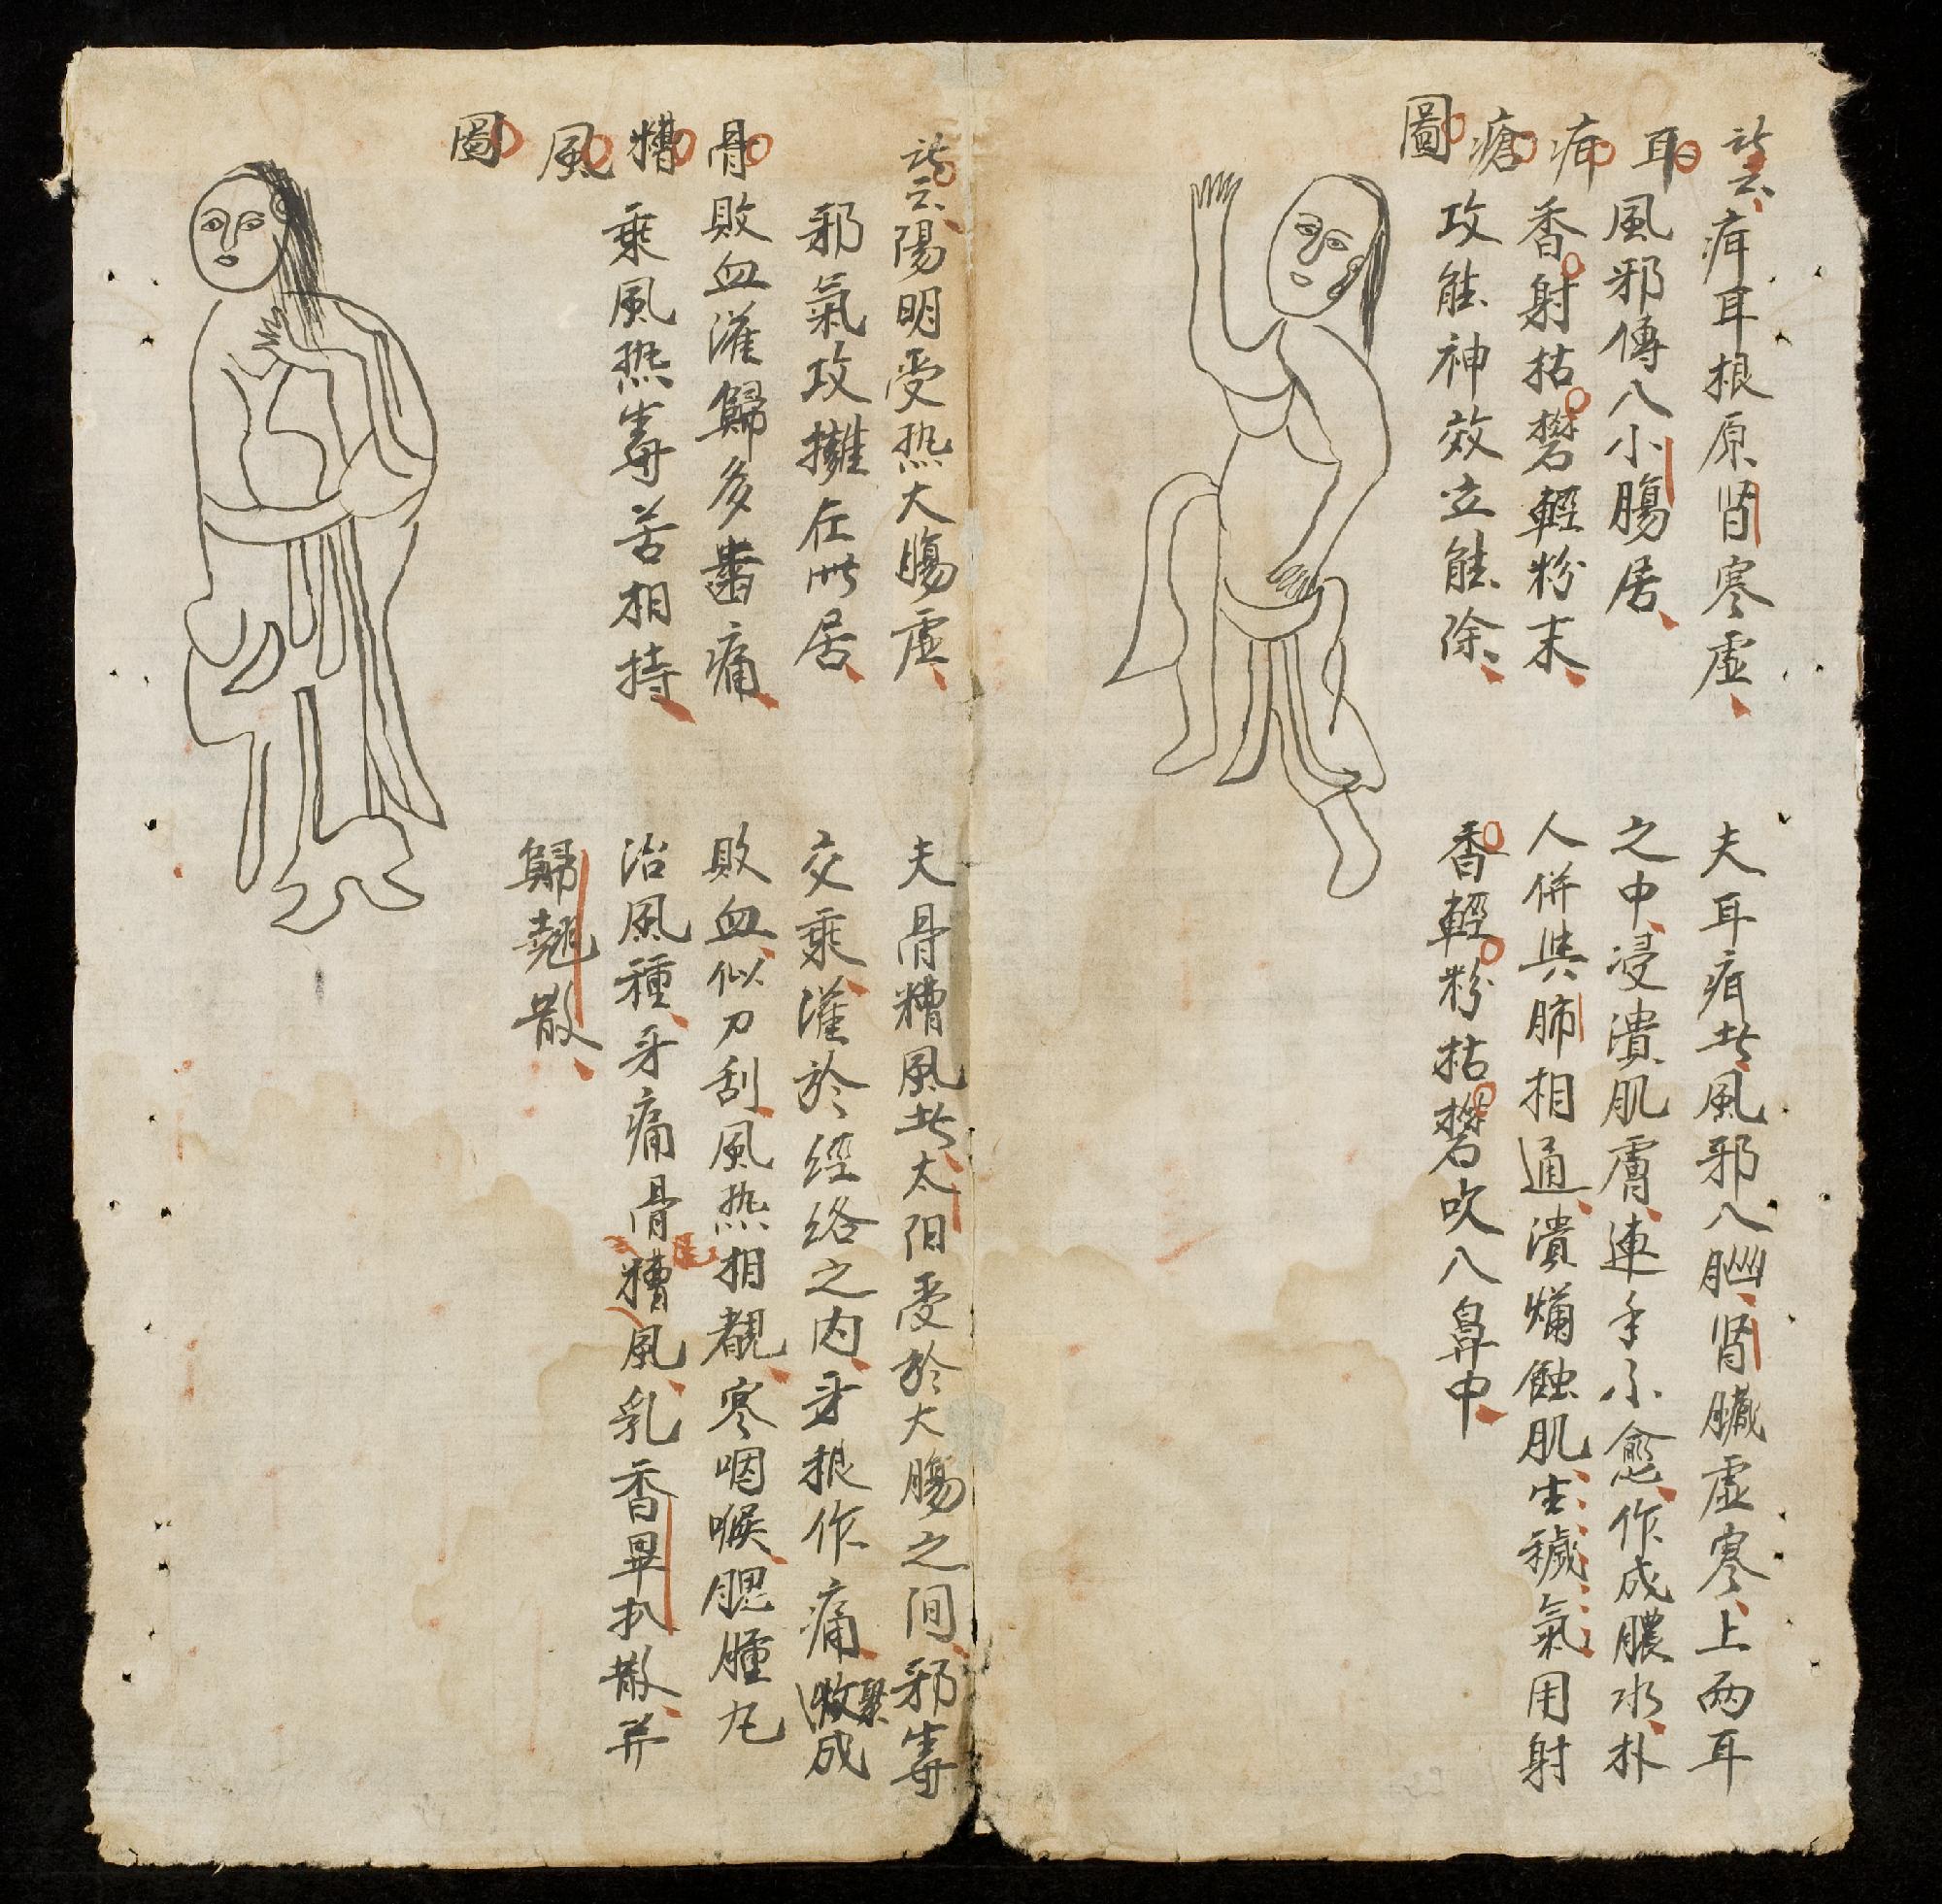 耳疳瘡圖
訣云疳耳根原肾寒虚
風邪傳入小腸居
香射枯礬輕粉末
攻能神效立能除
夫耳疳者風邪入腦肾臟虚寒上两耳
之中浸潰肌膚連年不愈作成膿水朴
人併與肺相通潰爛蝕肌生穢氣用射
香輕粉枯礬吹入鼻中
骨糟風圖
訣云陽明受热大腸虚
邪氣攻擁在此居
敗血灌歸多齒痛
乘風热毒苦相持
夫骨糟風者太阳受於大腸之间邪毒
交乘灌於經络之内牙根作痛聚成
敗血似刀刮風热相寒咽喉腮腫
治風種牙痛骨糟風乳香蓽扒散并
歸翹散